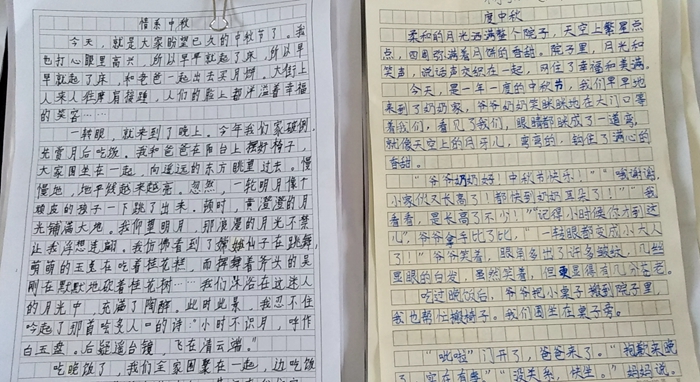 惜系中秋
今天，就是大家盼望已久的中秋节了。我
也打心眼里高兴，所以早早就起了床，所以早
早就起了床，和爸爸一起出去买月饼。大街上
人来人往摩肩接踵，人们的脸上都洋溢着幸福
的笑容……
一转眼，就来到了晚上。今年我们家破例，
先赏月后吃饭。我和爸爸在阳台上摆好椅子，
大家围坐在一起，向遥远的东方眺望过去。慢
慢地，地平线起来越亮。忽然，一轮明月像个
顽皮的孩子一下跳了出来。顿时，黄澄澄的月
光铺满大地。我仰望明月，那浪漫的月光不禁
让我浮想连翩。我仿佛看到了嫦娥仙子在跳舞，
萌萌的玉兔在吃着桂花糕，而挥舞着斧头的吴
刚在默默地砍着桂花树……我们深浴在这迷人
的月光中，充满了陶醉。此时此景，我忍不住
吟起了那首脍炙人口的诗：“小时不识月，呼作
白玉盘。后疑遥台镜，飞在清云端。”
吃晚饭了，我们全家围聚在一起，边吃饭
度中秋
柔和的月光洒满整个院子，天空上繁星点
点，四周弥满着月饼的香甜。院子里，月光和
笑声，说话声交织在一起，网住了幸福和美满。
今天，是一年一度的中秋节，我们早早地
来到了奶奶家，爷爷奶奶笑眯眯地在大门口等
着我们，看见了我们，眼睛都眯成了一道弯，
就像天空上的月牙儿，弯弯的，钩住了满心的
香甜。
“爷爷奶奶好！中秋节快乐！”“哦谢谢。
小家伙又长高了！都快到奶奶耳朵了！”“我
看看，是长高了不少！”“记得小时候你才到这
儿”，爷爷拿手比了比，“一转眼都变成小大人
了！”爷爷笑着，眼角多出了许多皱纹，几丝
显眼的白发，虽然笑着，但更显得有几分苍老。
吃过晚饭后，爷爷把小桌子搬到院子里，
我也帮忙搬椅子。我们围坐在桌子旁。
门开了，爸爸来了。“抱歉来晚
“没关系，快坐。”妈妈说。